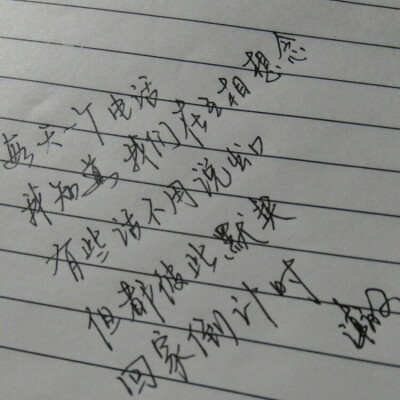 每天一个电话
我知道 我们在互相想念
有些话不用说出口
但都彼此默契
回家倒计时